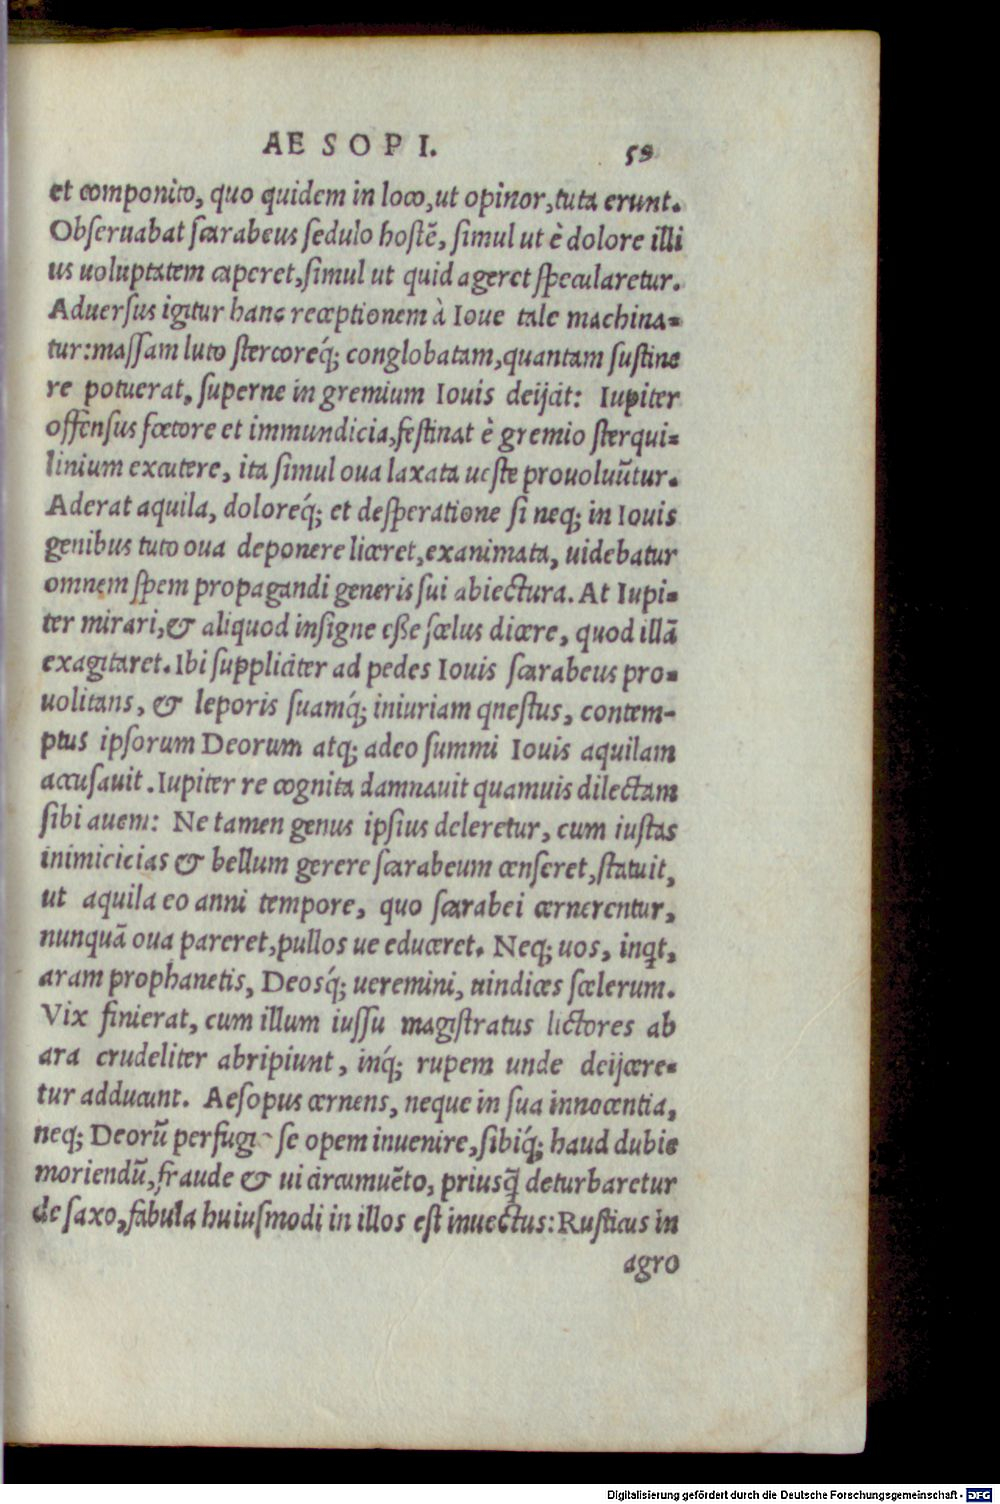 AE SOPI. 59
et componito, quo quidem in loco, ut opinor, tuta erunt.
Obseruabat scarabeus sedulo hostẽ, simul ut è dolore illi
us uoluptatem caperet, simul ut quid ageret specularetur.
Aduersus igitur hanc receptionem à Ioue tale machina-
tur: massam luto stercoreq́; conglobatam, quantam sustine
re potuerat, superne in gremium Iouis deijcit: Iupiter
offensus fœtore et immundicia, festinat è gremio sterqui-
linium excutere, ita simul oua laxata ueste prouoluũtur.
Aderat aquila, doloreq́; et desperatione si neq; in Iouis
genibus tuto oua deponere liceret, exanimata, uidebatur
omnem spem propagandi generis sui abiectura. At Iupi-
ter mirari, & aliquod insigne esse scelus dicere, quod illã
exagitaret. Ibi suppliciter ad pedes Iouis scarabeus pro-
uolitans, & leporis suamq́; iniuriam qnestus, contem-
ptus ipsorum Deorum atq; adeo summi Iouis aquilam
accusauit. Iupiter re cognita damnauit quamuis dilectam
sibi auem: Ne tamen genus ipsius deleretur, cum iustas
inimicicias & bellum gerere scarabeum censeret, statuit,
ut aquila eo anni tempore, quo scarabei cernerentur,
nunquã oua pareret, pullos ue educeret. Neq; uos, inqt,
aram prophanetis, Deosq́; ueremini, uindices scelerum.
Vix finierat, cum illum iussu magistratus lictores ab
ara crudeliter abripiunt, inq́; rupem unde deijcere-
tur adducunt. Aesopus cernens, neque in sua innocentia,
neq; Deorũ perfugi se opem inuenire, sibiq́; haud dubie
moriendũ, fraude & ui circumuẽto, priusq̃ deturbaretur
de saxo, fabula huiusmodi in illos est inuectus: Rusticus in
agro
Digitalisierung gefördert durch die Deutsche Forschungsgemeinschaft - DFG